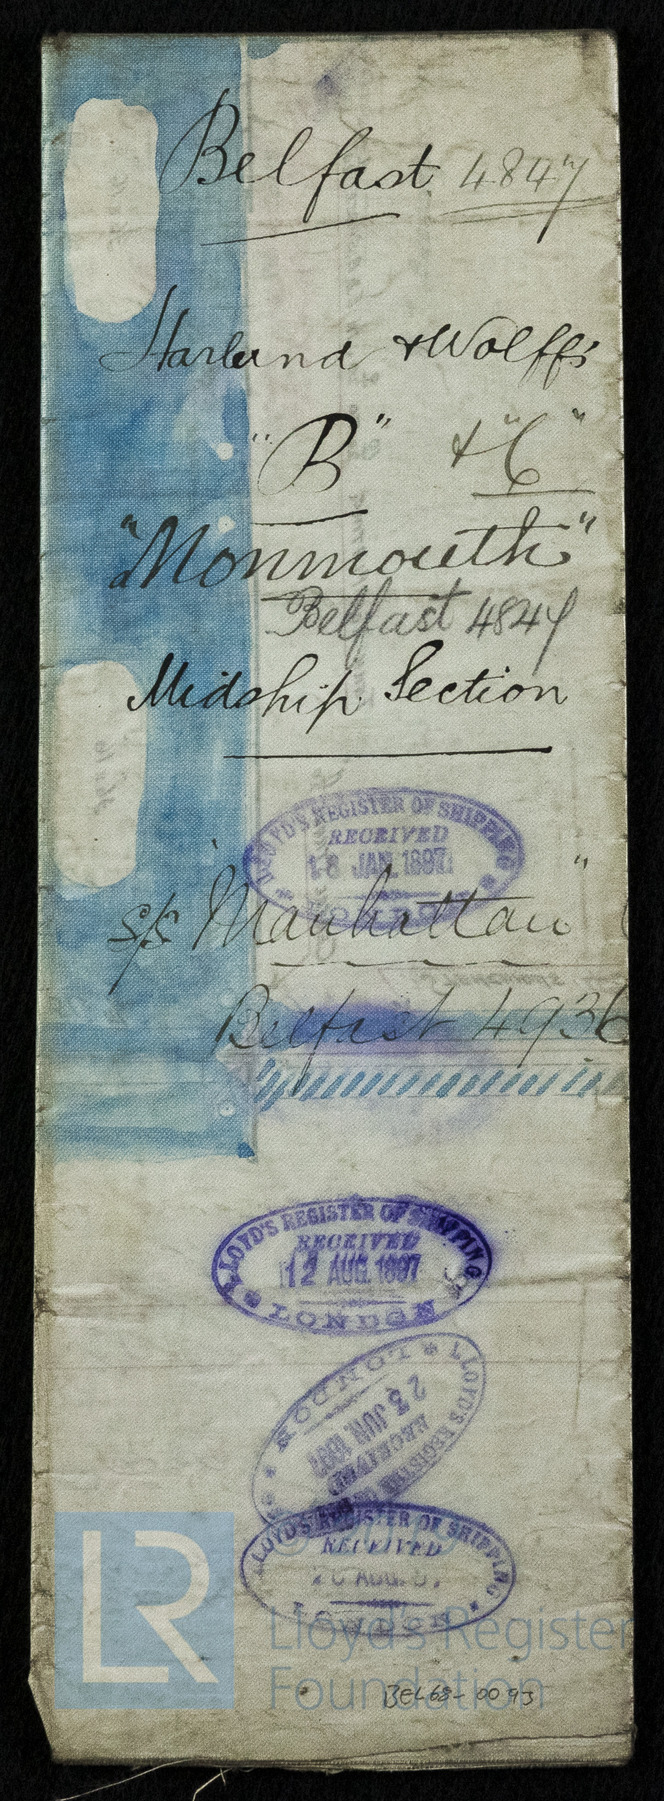 Belfast 4847
Harland & Wolff's
"B" & "C"
"Monmouth"
Belfast 4847
Midship Section
LLOYD'S REGISTER OF SHIPPING
RECEIVED
18 JAN. 1897
LONDON
s/s "Manhattan"
Belfast 4936
LLOYD'S REGISTER OF SHIPPING
RECEIVED
12 AUG. 1897
LONDON
LLOYD'S REGISTER
RECEIVED
23 JUN.
LONDON
LLOYD'S REGISTER OF SHIPPING
RECEIVED
AUG.
LONDON
LR
Lloyd's Register
Foundation
BEL68-0093